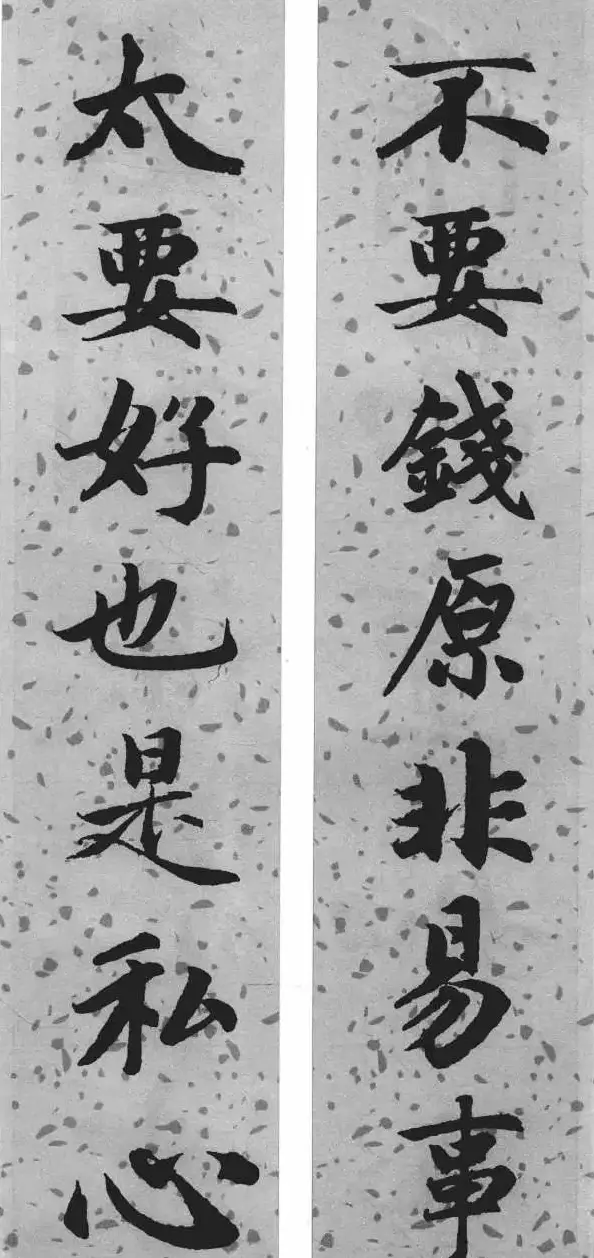 不要錢原非易事
太要好也是私心